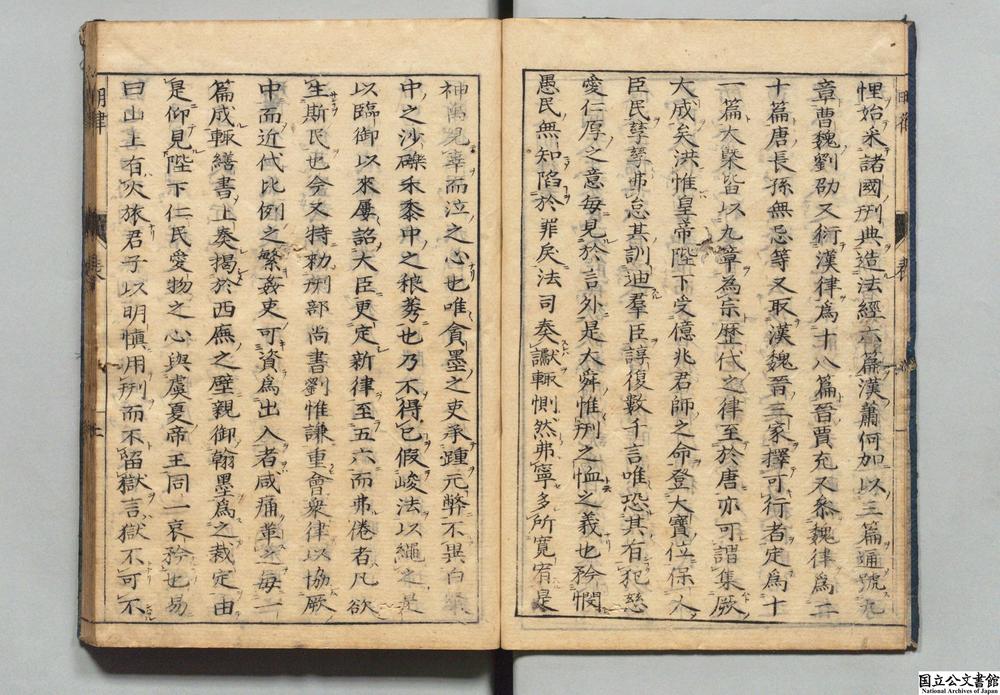 悝始采諸國刑典造法經六篇漢蕭何加以三篇通號九
章曹魏劉劭又衍漢律爲十八篇晉賈充又叅魏律爲二
十篇唐長孫無忌等又取漢魏晉三家擇可行者定爲十
二篇大槩皆以九章為宗歷代之律至於唐亦可謂集厥
大成矣洪惟皇帝陛下受億兆君師之命登大寶位保人
臣民孳孳弗怠其訓迪羣臣諄復數千言唯恐其有犯慈
愛仁厚之意每見於言外是大舜惟刑之恤之義也矜憫
愚民無知陷於罪戾法司奏讞輙惻然弗寧多所寬宥是
神禹見辜而泣之心也唯貪墨之吏承踵元弊不異白粲
中之沙礫禾黍中之稂莠也乃不得已假峻法以繩之是
以臨御以來屢詔大臣更定新律至五六而弗倦者凡欲
生斯民也今又特勅刑部尚書劉惟謙重會衆律以協厥
中而近代比例之繁姦吏可資爲出入者咸痛革之每一
篇成輙繕書上奏揭於西廡之壁親御翰墨爲之裁定由
是仰見陛下仁民愛物之心與虞夏帝王同一哀矜也易
曰山上有火旅君子以明慎用刑而不留獄言獄不可不
明律
表
国立公文書館
National Archives of Japan